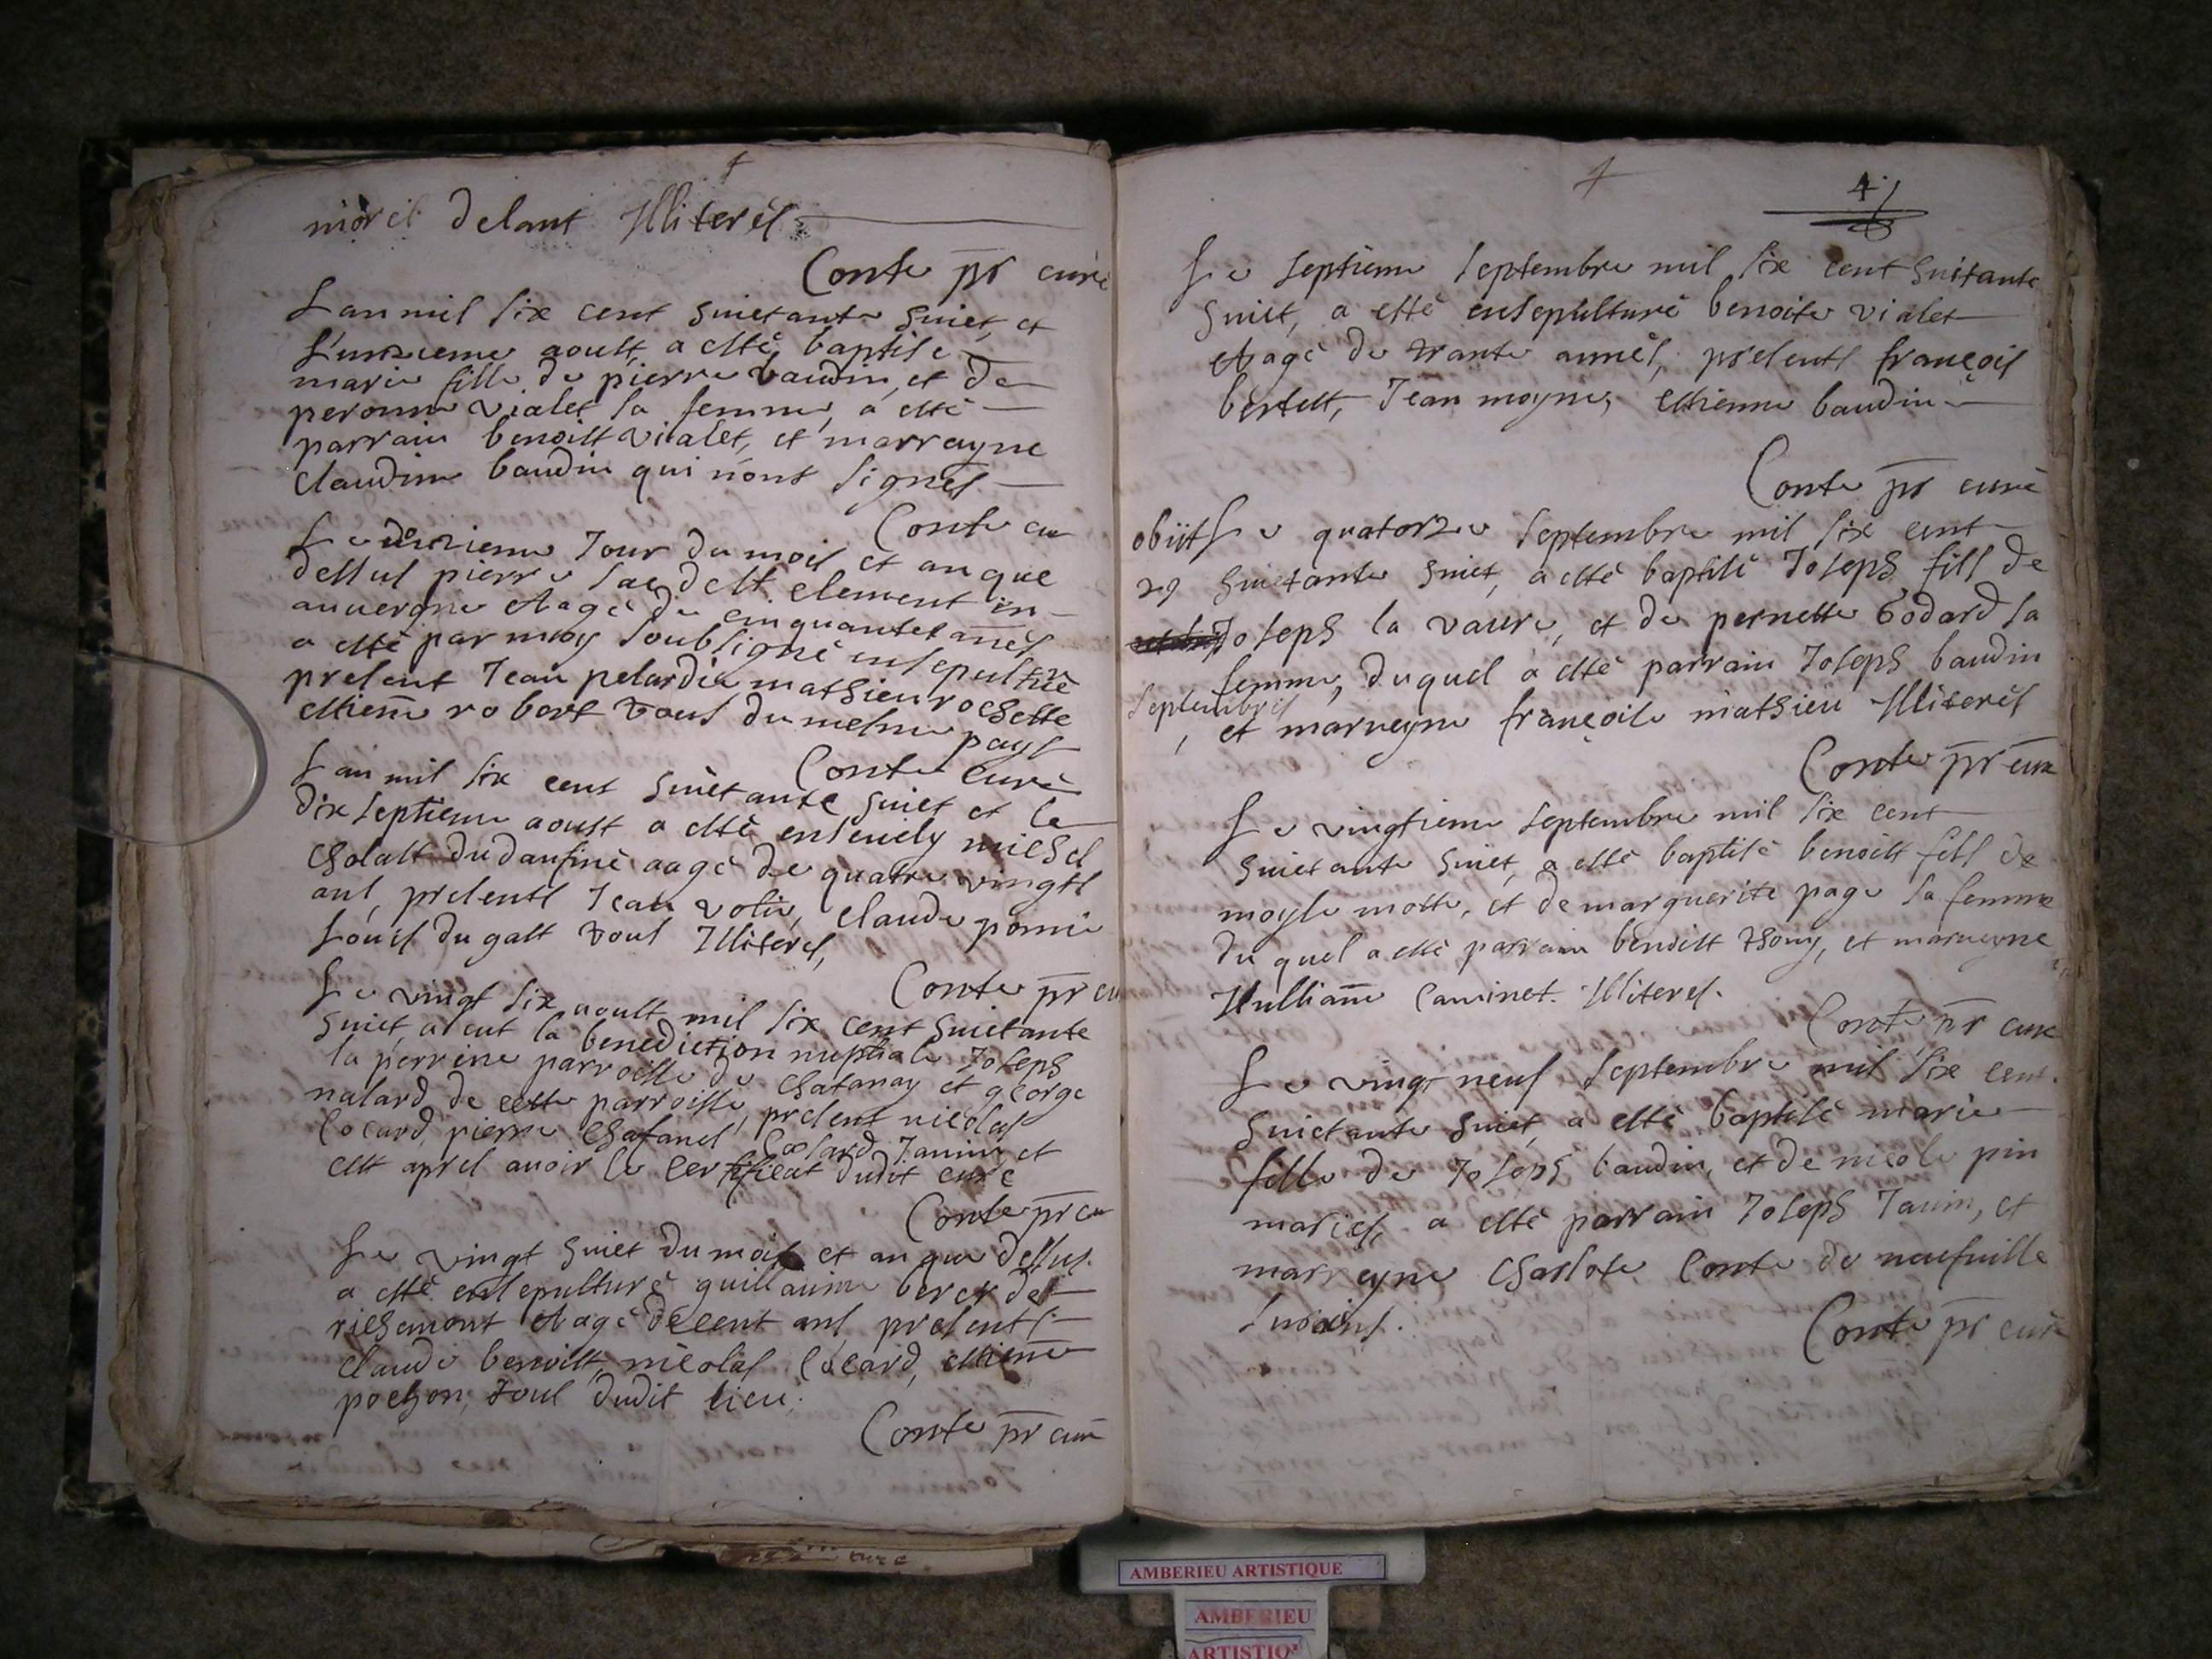 morel delant Illiterés
Conte pr curé
Lan mil six cent huictante huict, et
L'unzieme aoust, a esté baptise
marie fille de pierre baudin, et de
peronne vialet sa femme, a esté
parrain benoist vialet, et marrayne
Claudine baudin qui n'ont signés
Conte cu
Le douzieme Jour du mois et an que
dessus pierre sac de st clement in
auvergne et agé de cinquantes annés
a esté par moy soubsigné ensepulturé
present Jean pelardie mathieu rochette
estienne robert tous du mesme pays
Conte curé
Lan mil six cent huictante huict et le
dix septieme aoust a esté ensevely michel
cholatt du daufiné aagé de quatre vingts
ans, presents Jean volie, Claude pomie
Louis du gast tous Illiteres,
Conte pr cu
Le vingt six aoust mil six cent huictante
huict, a eut la benediction nuptiale Joseph
la perrine parroisse de Chatanay et george
nalard de cette parroisse, present nicolas
Cocard, pierre Chafanel, Colard Janin, et
est apres avoir le Certificat dudit curé
Conte pr cu
Le vingt huict du mois et an que dessus.
a esté ensepulturé guillaume beret de
richemont et agé de cent ans, presents
Claude benoist, nicolas Cocard, estienne
pochon, tous dudit lieu.
Conte pr curé
4
Le septieme septembre mil six cent huitante
huict, a esté ensepulturé benoite vialet
et agé de trante annés, presents françois
bertett, Jean moyne, estienne baudin
Conte pr curé
obiit
29
septembris
Le quatorze septembre mil six cent
huictante huict, a esté baptisé Joseph fils de
Joseph la vaure, et de pernette Godard sa
femme, duquel a esté parrain Joseph baudin
et marreyne françoise mathieu Illiterés
Conte pr cure
Le vingtieme septembre mil six cent
huictante huict, a esté baptisé benoist fils de
moyse motte, et de marguerite page sa femme
du quel a esté parrain benoist thony, et marreyne
Caminet. Illiteres.
Conte pr cure
Le vingt neuf septembre mil six cent
huictante huict, a esté baptisé marie
fille de Joseph baudin, et de nicole pin
mariés, a esté parrain Joseph Janin, et
marreyne Charlote Conte de neufuille
Conte pr curé
AMBERIEU ARTISTIQUE
AMBERIEU
ARTISTIQ